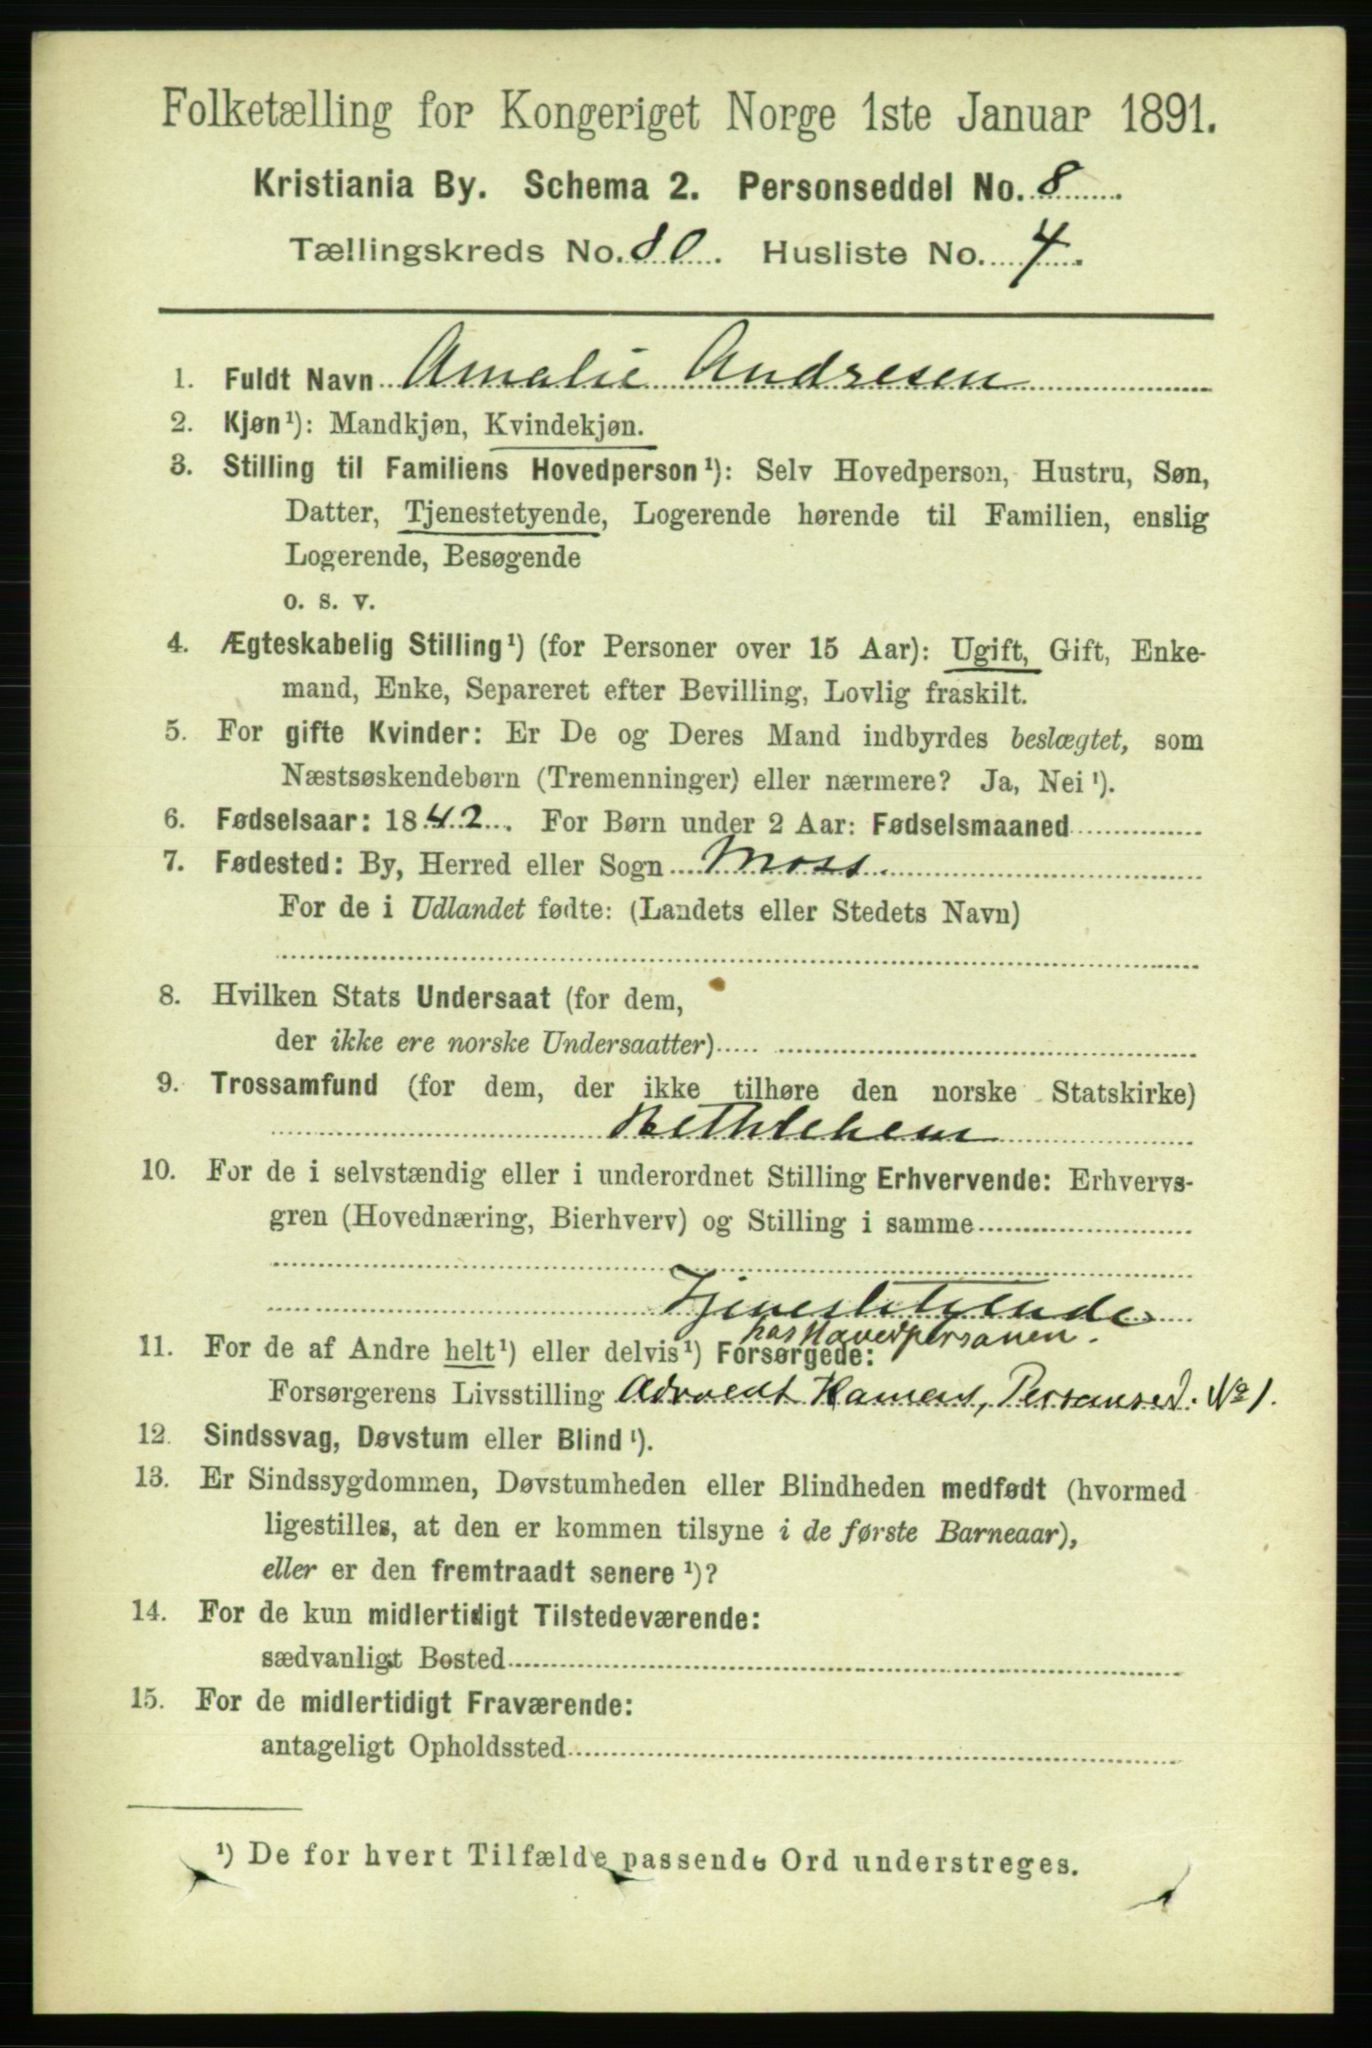 Folketælling for Kongeriget Norge 1ste Januar 1891.
Kristiania By. Schema 2. Personseddel No. 8
Tællingskreds No. 80. Husliste No. 4.
1. Fuldt Navn Amalie Andresen
2. Kjøn¹): Mandkjøn, Kvindekjøn.
3. Stilling til Familiens Hovedperson¹): Selv Hovedperson, Hustru, Søn,
Datter, Tjenestetyende, Logerende hørende til Familien, enslig
Logerende, Besøgende
o. s. v.
4. Ægteskabelig Stilling¹) (for Personer over 15 Aar): Ugift, Gift, Enke-
mand, Enke, Separeret efter Bevilling, Lovlig fraskilt.
5. For gifte Kvinder: Er De og Deres Mand indbyrdes beslægtet, som
Næstsøskendebørn (Tremenninger) eller nærmere? Ja, Nei¹).
6. Fødselsaar: 1842. For Børn under 2 Aar: Fødselsmaaned
7. Fødested: By, Herred eller Sogn Moss.
For de i Udlandet fødte: (Landets eller Stedets Navn)
8. Hvilken Stats Undersaat (for dem,
der ikke ere norske Undersaatter)
9. Trossamfund (for dem, der ikke tilhøre den norske Statskirke)
Bethlehem
10. For de i selvstændig eller i underordnet Stilling Erhvervende: Erhvervs-
gren (Hovednæring, Bierhverv) og Stilling i samme
Tjenestetyende
hos Hovedpersonen.
11. For de af Andre helt¹) eller delvis¹) Forsørgede:
Forsørgerens Livsstilling Advocat Personsed. No 1.
12. Sindssvag, Døvstum eller Blind¹).
13. Er Sindssygdommen, Døvstumheden eller Blindheden medfødt (hvormed
ligestilles, at den er kommen tilsyne i de første Barneaar),
eller er den fremtraadt senere¹)?
14. For de kun midlertidigt Tilstedeværende:
sædvanligt Bosted
15. For de midlertidigt Fraværende:
antageligt Opholdssted
¹) De for hvert Tilfælde passende Ord understreges.